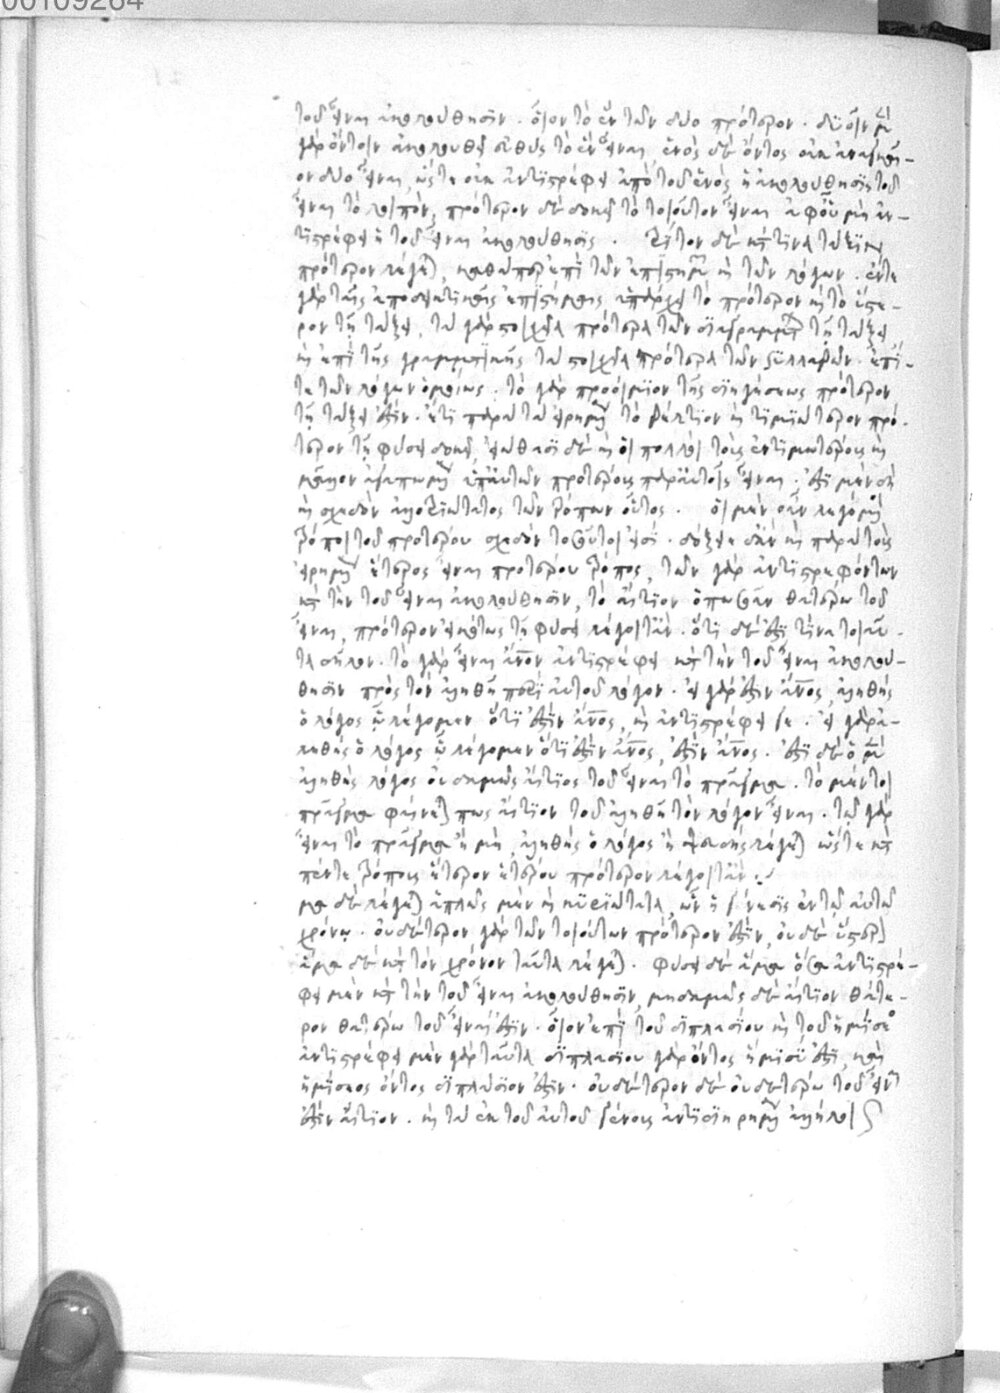 00109264
τοῦ εἶναι ἀκολούθησιν. οἷον τὸ ἓν τῶν δύο πρότερον. δυοῖν μὲν
γὰρ ὄντοιν ἀκολουθεῖ εὐθὺς τὸ ἓν εἶναι, ἑνὸς δὲ ὄντος οὐκ ἀναγκαῖ-
ον δύο εἶναι, ὥστε οὐκ ἀντιστρέφει ἀπὸ τοῦ ἑνὸς ἡ ἀκολούθησις τοῦ
εἶναι τὸ λοιπόν, πρότερον δὲ δοκεῖ τὸ τοιοῦτον εἶναι ἀφ' οὗ μὴ ἀν-
τιστρέφει ἡ τοῦ εἶναι ἀκολούθησις. Τρίτον δὲ κατά τινα τάξιν
πρότερον λέγεται, καθάπερ ἐπὶ τῶν ἐπιστημῶν καὶ τῶν λόγων. ἔν τε
γὰρ ταῖς ἀποδεικτικαῖς ἐπιστήμαις ὑπάρχει τὸ πρότερον καὶ τὸ ὕστε-
ρον τῇ τάξει, τὰ γὰρ στοιχεῖα πρότερα τῶν διαγραμμάτων τῇ τάξει
καὶ ἐπὶ τῆς γραμματικῆς τὰ στοιχεῖα πρότερα τῶν συλλαβῶν. ἐπί
τε τῶν λόγων ὁμοίως. τὸ γὰρ προοίμιον τῆς διηγήσεως πρότερον
τῇ τάξει ἐστίν. ἔτι παρὰ τὰ εἰρημένα τὸ βέλτιον καὶ τιμιώτερον πρό-
τερον τῇ φύσει δοκεῖ, εἰώθασι δὲ καὶ οἱ πολλοὶ τοὺς ἐντιμοτέρους καὶ
μᾶλλον ἀγαπωμένους ὑπ' αὐτῶν προτέρους παρ' αὐτοῖς εἶναι. ἔστι μὲν δὴ
καὶ σχεδὸν ἀλλοτριώτατος τῶν τρόπων οὗτος. οἱ μὲν οὖν λεγόμενοι
τρόποι τοῦ προτέρου σχεδὸν τοσοῦτοί εἰσι. δόξειε δ' ἂν καὶ παρὰ τοὺς
εἰρημένους ἕτερος εἶναι προτέρου τρόπος, τῶν γὰρ ἀντιστρεφόντων
κατὰ τὴν τοῦ εἶναι ἀκολούθησιν, τὸ αἴτιον ὁπωσοῦν θατέρῳ τοῦ
εἶναι, πρότερον εἰκότως τῇ φύσει λέγοιτ' ἄν. ὅτι δ' ἔστι τινὰ τοιαῦ-
τα δῆλον. τὸ γὰρ εἶναι ἄνον ἀντιστρέφει κατὰ τὴν τοῦ εἶναι ἀκολού-
θησιν πρὸς τὸν ἀληθῆ περὶ αὐτοῦ λόγον. εἰ γὰρ ἔστιν ἄνος, ἀληθὴς
ὁ λόγος ᾧ λέγομεν ὅτι ἔστιν ἄνος, καὶ ἀντιστρέφει γε. εἰ γὰρ ἀ-
ληθὴς ὁ λόγος ᾧ λέγομεν ὅτι ἔστιν ἄνος, ἔστιν ἄνος. ἔστι δὲ ὁ μὲν
ἀληθὴς λόγος οὐδαμῶς αἴτιος τοῦ εἶναι τὸ πρᾶγμα. τὸ μέντοι
πρᾶγμα φαίνεταί πως αἴτιον τοῦ ἀληθῆ τὸν λόγον εἶναι. τῷ γὰρ
εἶναι τὸ πρᾶγμα ἢ μὴ, ἀληθὴς ὁ λόγος ἢ ψευδὴς λέγεται, ὥστε κατὰ
πέντε τρόπους ἕτερον ἑτέρου πρότερον λέγοιτ' ἄν.
μα δὲ λέγεται ἁπλῶς μὲν καὶ κυριώτατα, ὧν ἡ γένεσις ἐν τῷ αὐτῷ
χρόνῳ. οὐδέτερον γὰρ τῶν τοιούτων πρότερόν ἐστιν, οὐδὲ ὕστερον
ἅμα δὲ κατὰ τὸν χρόνον ταῦτα λέγεται. φύσει δὲ ἅμα ὅσα ἀντιστρέ-
φει μὲν κατὰ τὴν τοῦ εἶναι ἀκολούθησιν, μηδαμῶς δὲ αἴτιον θάτε-
ρον θατέρῳ τοῦ εἶναί ἐστιν. οἷον ἐπὶ τοῦ διπλασίου καὶ τοῦ ἡμίσεος
ἀντιστρέφει μὲν γὰρ ταῦτα διπλασίου γὰρ ὄντος ἥμισύ ἐστι, καὶ
ἡμίσεος ὄντος διπλάσιόν ἐστιν. οὐδέτερον δὲ οὐδετέρῳ τοῦ εἶναι
ἐστὶν αἴτιον. καὶ τὰ ἐκ τοῦ αὐτοῦ γένους ἀντιδιῃρημένα ἀλλήλοις